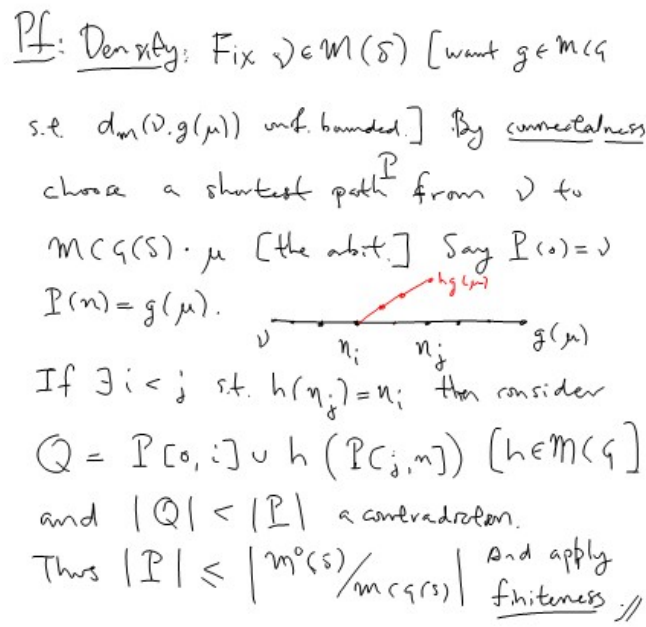 Pf: Density: Fix ν ∈ M(S) [want g ∈ MCG
s.t. d_M(ν, g(μ)) unf. bounded.] By connectedness
choose a shortest path P from ν to
MCG(S)·μ [the orbit.] Say P(0) = ν
P(n) = g(μ).
hg(μ)
ν η_i η_j g(μ)
If ∃ i < j s.t. h(η_j) = η_i then consider
Q = P[0,i] ∪ h(P[j,n]) [h ∈ MCG]
and |Q| < |P| a contradiction.
Thus |P| ≤ |M⁰(S)/MCG(S)| And apply
finiteness.//